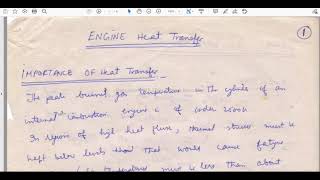 ENGINE Heat Transfer
1
IMPORTANCE OF Heat Transfer
The peak burned gas temperature in the cylinder of an
internal combustion engine is of order 2500K
In regions of high heat flux, thermal stresses must be
kept below levels that would cause fatigue
must be less than about